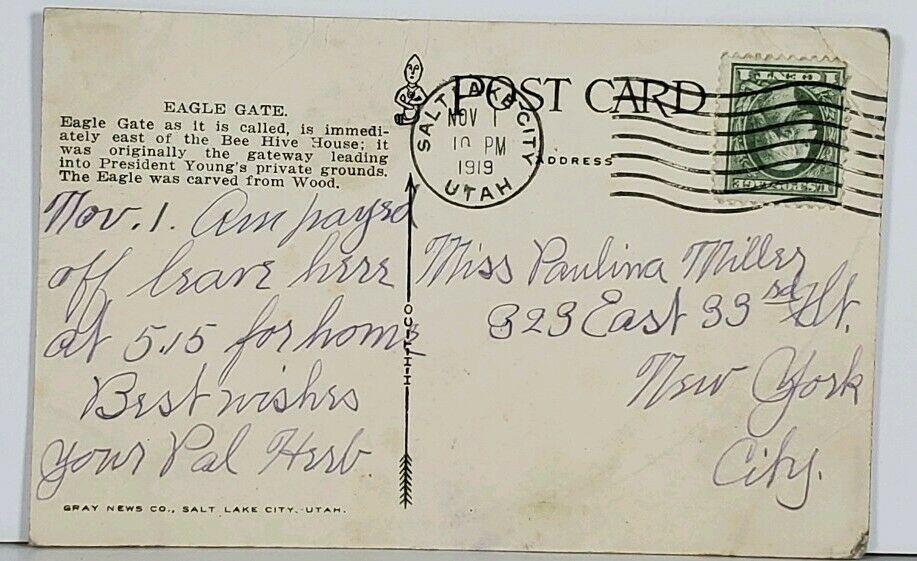 POST CARD
SALT LAKE CITY
NOV 1
10 PM
1919
UTAH
ADDRESS
EAGLE GATE.
Eagle Gate as it is called, is immedi-
ately east of the Bee Hive House; it
was originally the gateway leading
into President Young's private grounds.
The Eagle was carved from Wood.
Nov. 1. Am payed
off leave here
at 5.15 for home
Best wishes
Your Pal Herb
Miss Paulina Miller
323 East 33rd St.
New York
City.
C-T-H-H
GRAY NEWS CO., SALT LAKE CITY, UTAH.